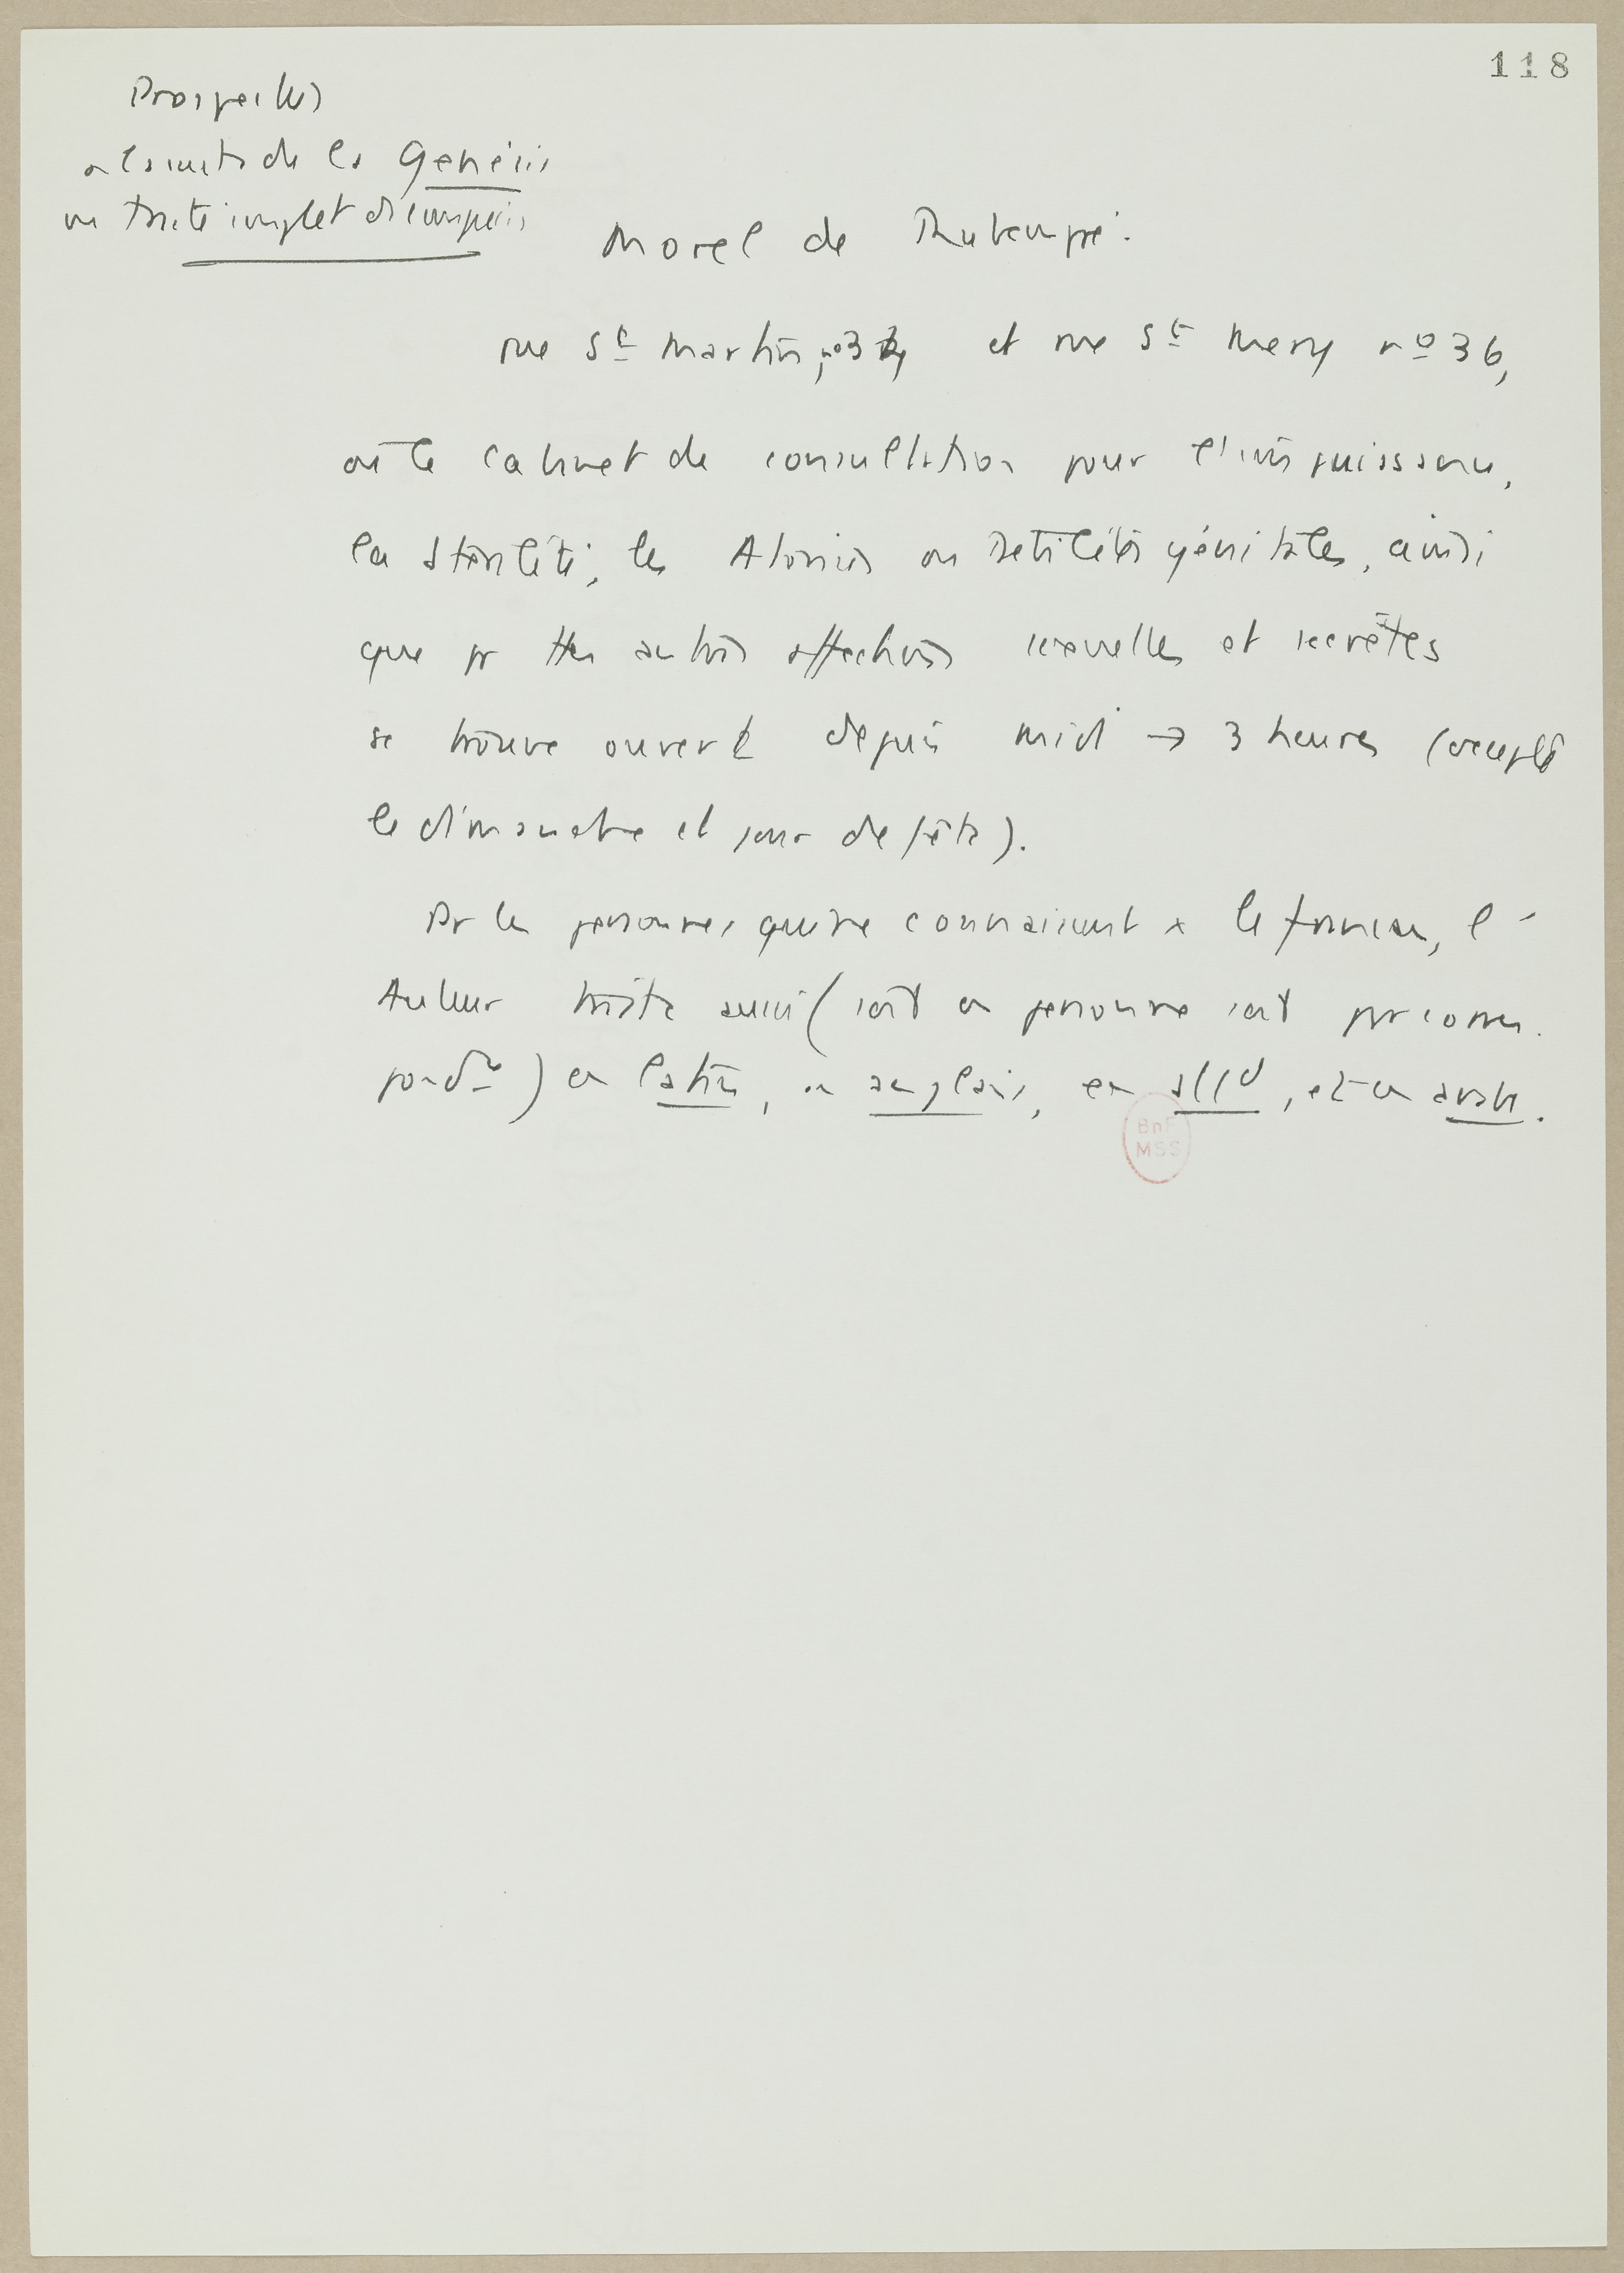 118
Prospectus
a la suite de la Genésie
ou traité complet d'impuis
Morel de Rubempré.
rue St Martin, no 32, et rue St Mery no 36,
où le cabinet de consultation pour l'impuissance,
la stérilité, les Atonies ou Débilités génitales, ainsi
que pr ttes autres affections sexuelles et secrètes
se trouve ouvert depuis midi → 3 heures (excepté
le dimanche et jour de fête).
Pr les personnes qui ne connaissent x le français, l'
Auteur traite aussi (soit en personne soit par corres-
pondce) en latin, en anglais, en alld, et en arabe.
BnF
MSS